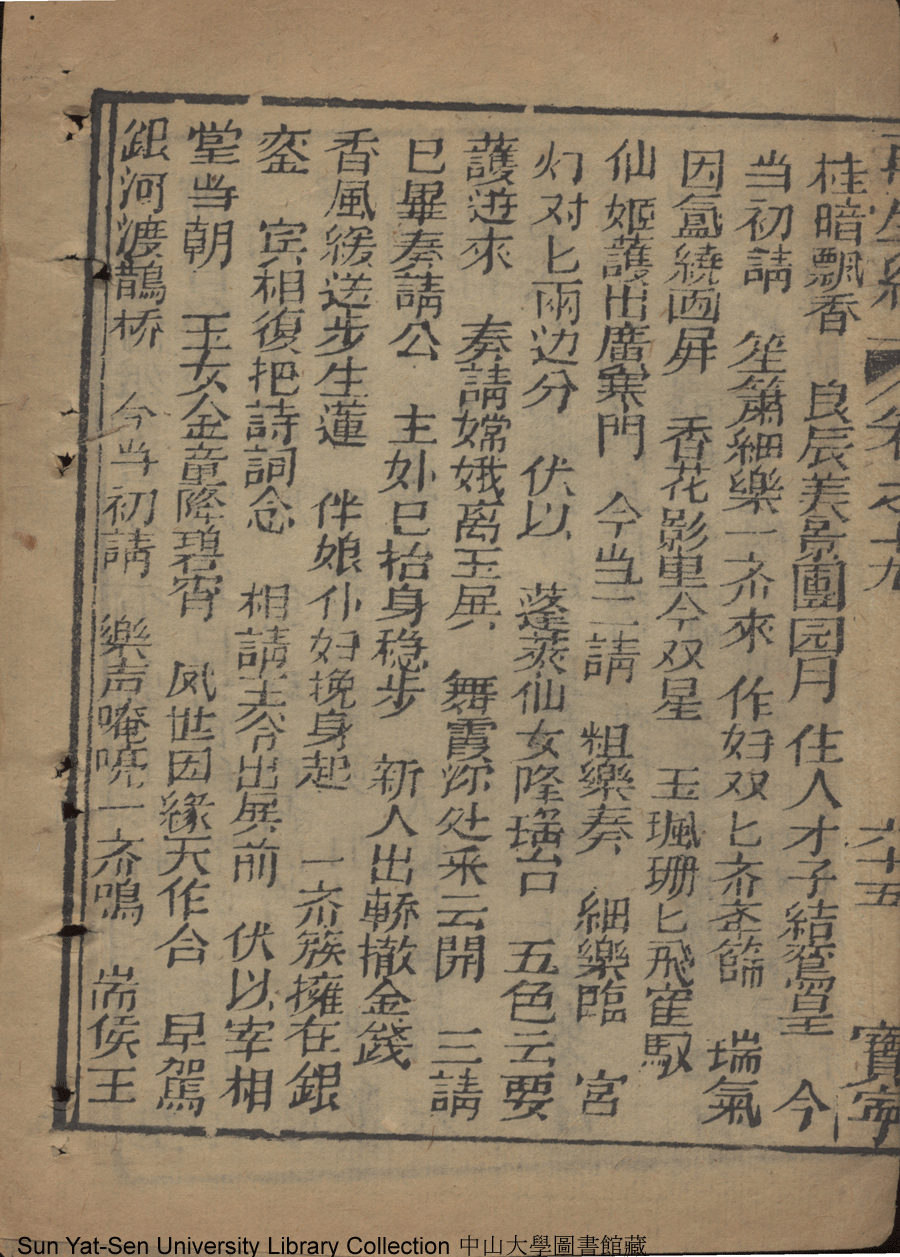 再生緣 卷之十九 六十五 寶寧
桂暗飄香 良辰美景團园月 住人才子結鴛皇 今
当初請 笙簫細樂一齐來 作妇双匕齐奎篩 瑞氣
因氲繞画屏 香花影里今双星 玉珮珊匕飛宦馭
仙姬護出廣寒門 今当二請 粗樂奏 細樂臨 宮
灯对匕兩边分 伏以 蓬萊仙女降瑤台 五色云要
護逰來 奏請嫦娥离玉展 舞霞深处釆云開 三請
巳畢奏請公 主妙巳抬身稳步 新人出轎撤金錢
香風緩送步生蓮 伴娘仆妇挽身起 一齐簇擁在銀
銮 宾相復把詩詞念 相請王爷出展前 伏以宰相
堂当朝 玉女金童降碧霄 夙世因緣天作合 早駕
銀河渡鵲桥 今当初請 樂声嗈喨一齐鳴 耑侯王
Sun Yat-Sen University Library Collection 中山大學圖書館藏